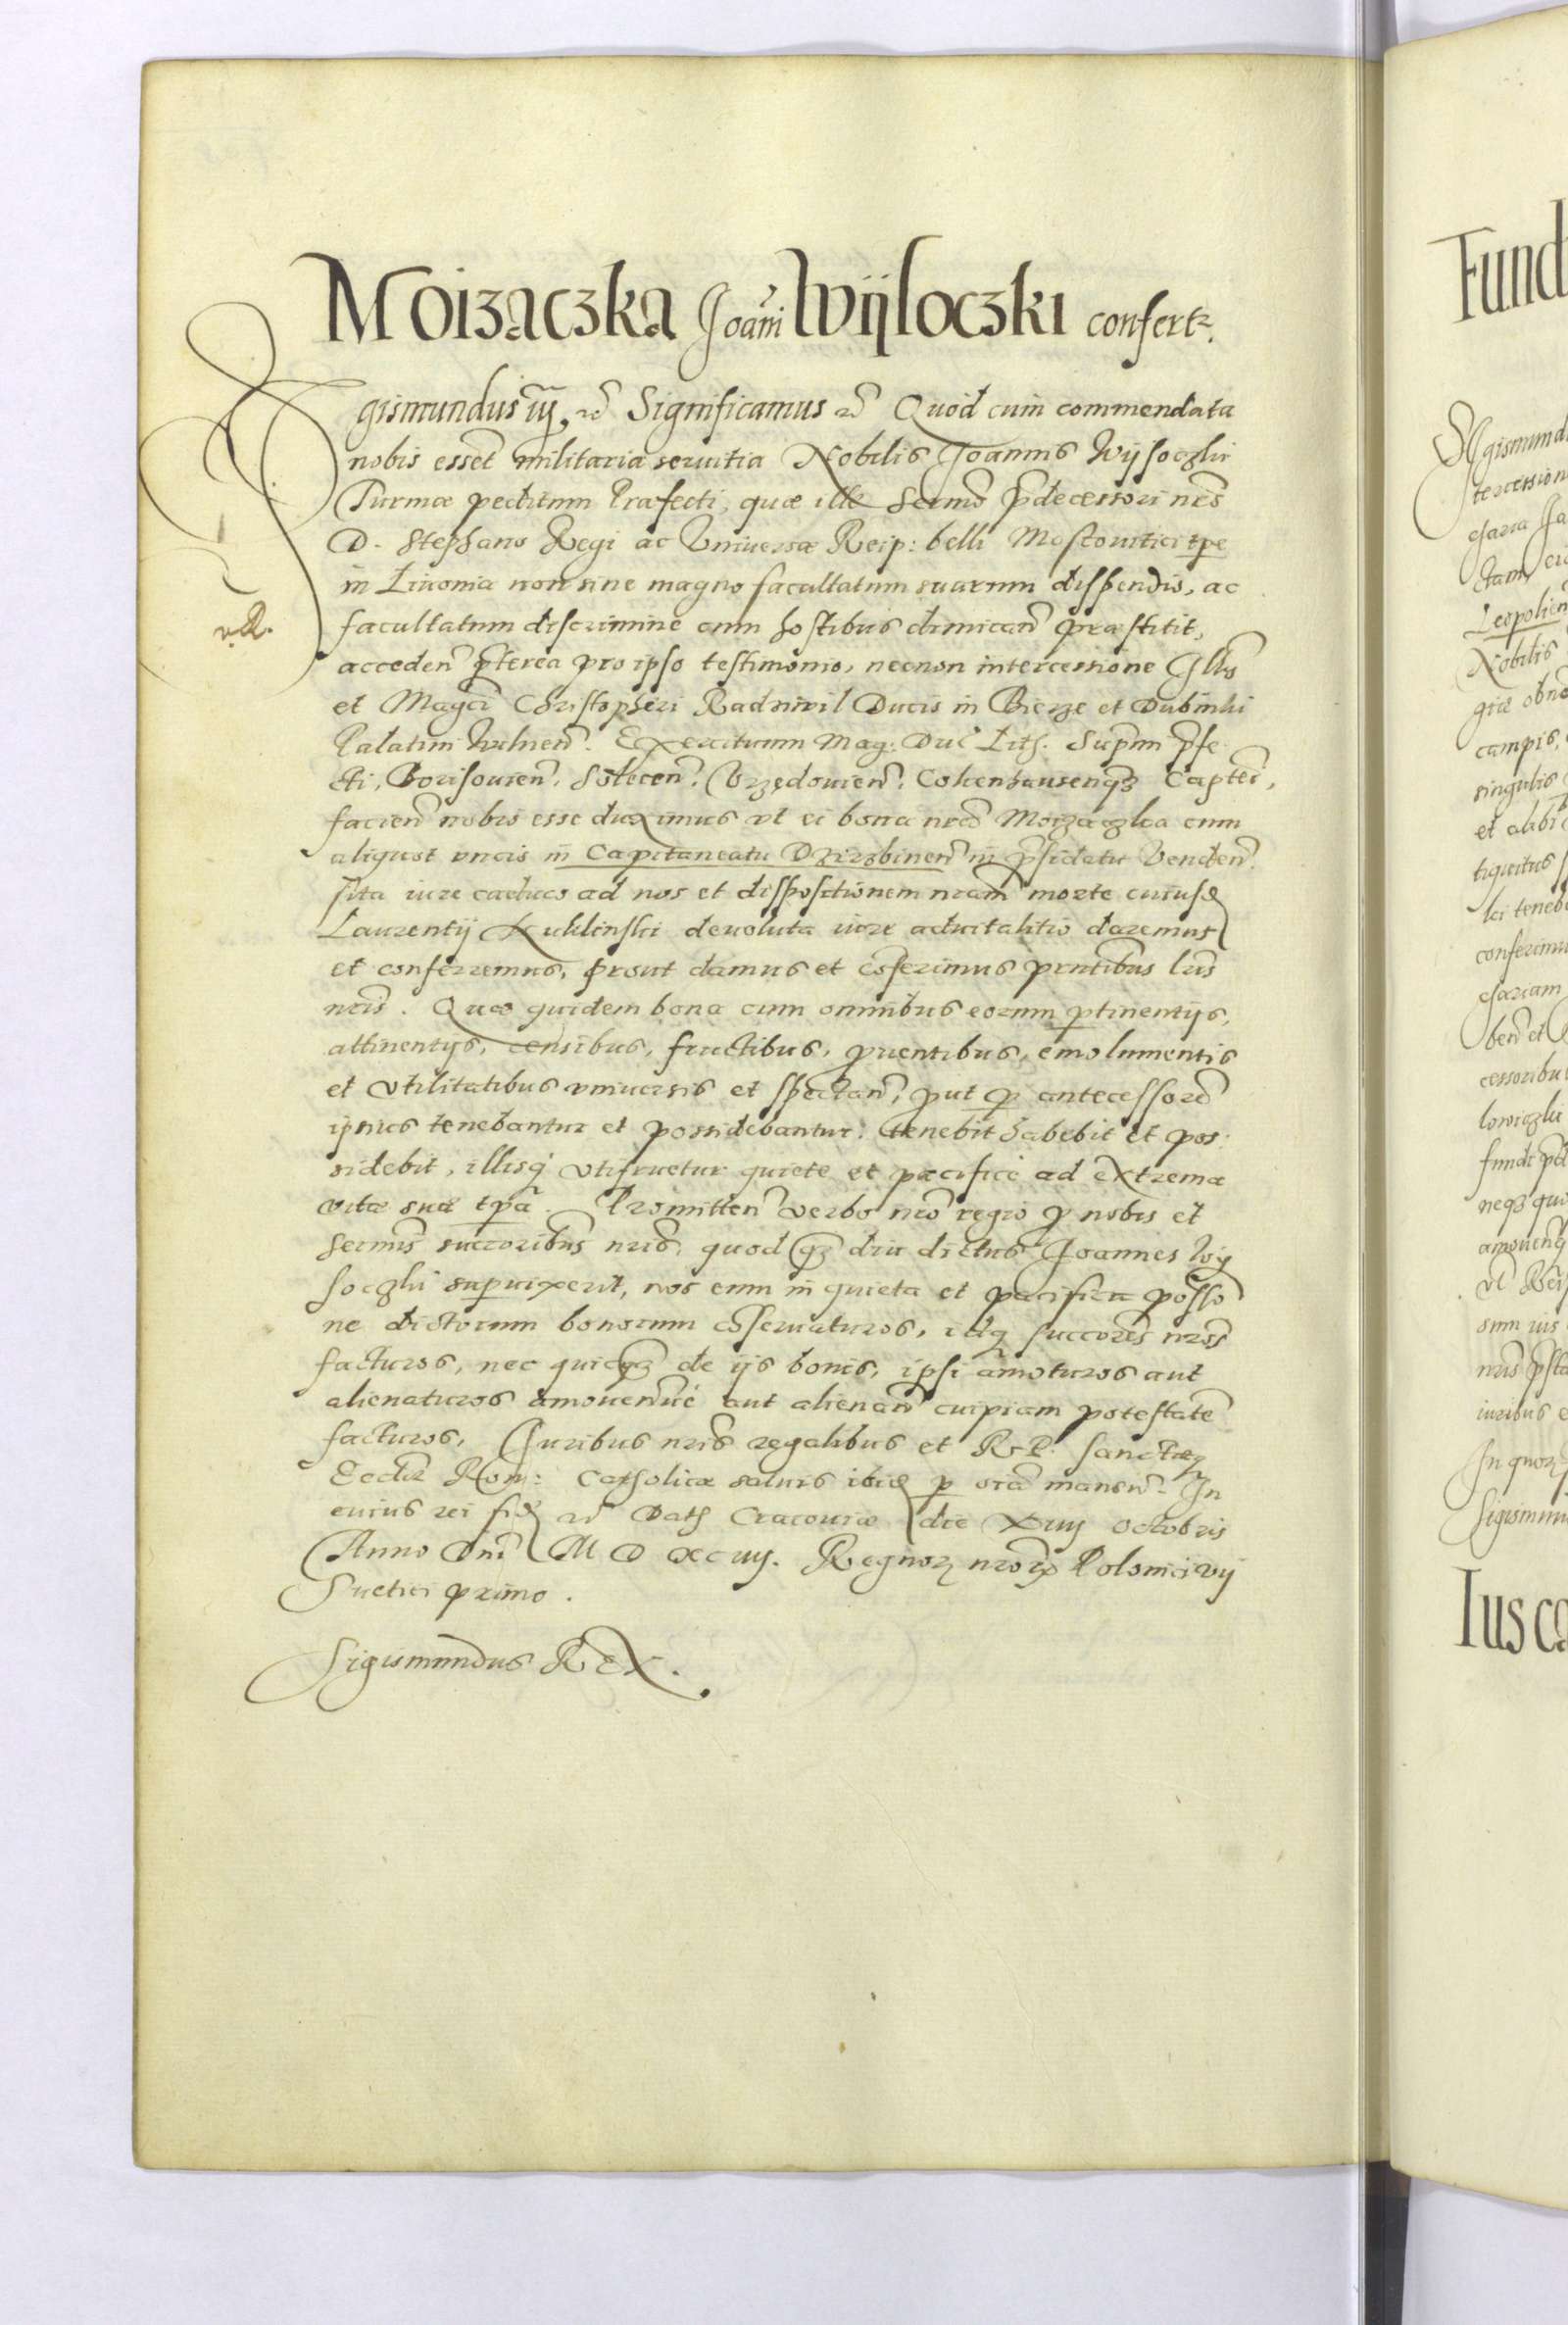 Moizaczka Joãni Wijsoczki confertr.
Sigismundus iij, etc Significamus etc Quod cum commendata
nobis esset militaria seruitia Nobilis Joannis Wijsoczki
Turmæ peditum Præfecti, quæ ille Sermo prdecessori nro
D. Stephano Regi ac Vniuersæ Reip: belli Moscouitici tpe
in Liuonia non sine magno facultatum suarum dispendio, ac
facultatum discrimine cum hostibus dimican præstitit,
acceden prterea pro ipso testimonio, necnon intercessione Illis
et Magci Christopheri Radziwil Ducis in Bierze et Dubinki
Palatini Vilnen. Exercituum Mag: Duc Lith. Suprmi prfe
cti, Borisouien, Solecen, Vrzędouien, Cokenhausenqz Captei,
facien nobis esse duximus vt ei bona nra Moizaczka cum
aliquot vncis in Capitaneatu Dzirzbinen in prsidatu Venden
sita iure caduco ad nos et dispositionem nram morte cuiusd
Laurentij Kuklinski deuoluta iure aduitalitio daremus
et conferremus, prout damus et coferimus prntibus lris
nris. Quæ quidem bona cum omnibus eorum ptinentijs,
attinentijs, censibus, fructibus, prouentibus, emolumentis
et vtilitatibus vniuersis et spectan, put p antecessore
ipsius tenebantur et possidebantur. tenebit habebit et pos
sidebit, illisq vtifruetur quiete et pacifice ad extrema
vitæ suæ tpa. Promitten verbo nro regio p nobis et
Sermis succoribus nris, quod qz diu dictus Joannes Wij
soczki superuixerit, nos eum in quieta et pacifica posso
ne dictorum bonorum coseruaturos, idq succores nros
facturos, nec quicqz de ijs bonis, ipsi amoturos aut
alienaturos amouenue aut alienan cuipiam potestate
facturos, Juribus nris regalibus et R.P. Sanctæq
Eccliæ Rom: Catholicæ saluis ibid p oia mansu. In
cuius rei fid etc Dath Cracouiæ die xviij Octobris
Anno Dni M D xciiij. Regnorz nrorx Poloniæ vij
Suetici primo.
Sigismundus REX.
Fund
Sigismund
tercession
Leopolien
Nobilis
giæ obno
campis,
singulis
et alibi
conferimu
cessoribu
iuribus e
Sigismun
Ius co